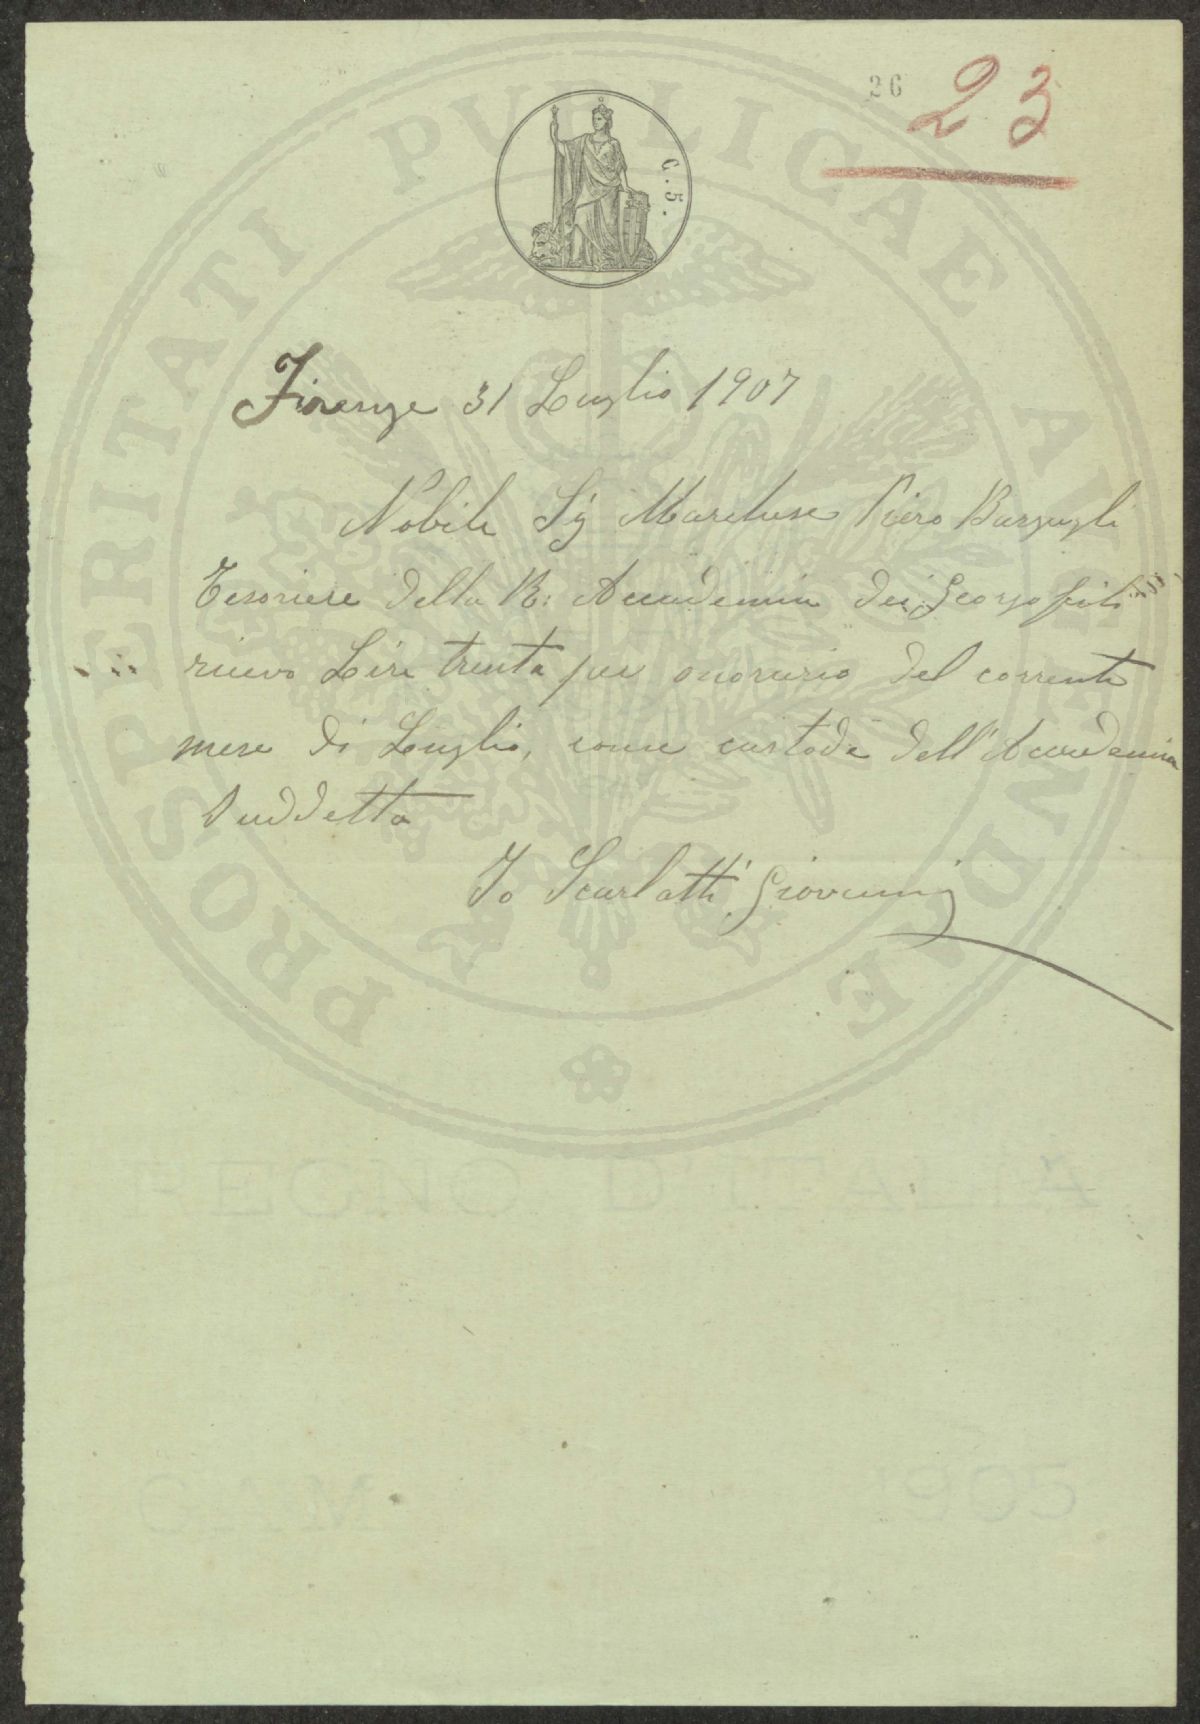 26
23
C. 5.
PROSPERITATI PUBLICAE AUGENDAE
Firenze 31 Luglio 1907
Nobile Sig Marchese Piero Bargagli
Tesoriere della R: Accademia dei Georgofili
ricevo Lire trenta per onorario del corrente
mese di Luglio, come custode dell'Accademia
Suddetta
Io Scarlatti Giovanni
REGNO D'ITALIA
1905